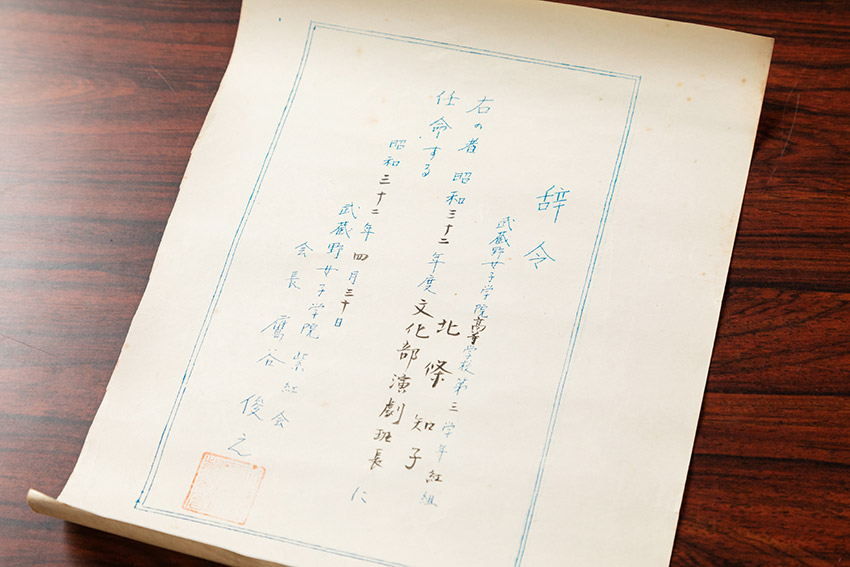 辞令
武蔵野女子学院高等学校第三学年紅組
北條知子
右の者昭和三十二年度文化部演劇班長に
任命する
昭和三十二年四月三十日
武蔵野女子学院紫紅会
会長 鷹谷俊之